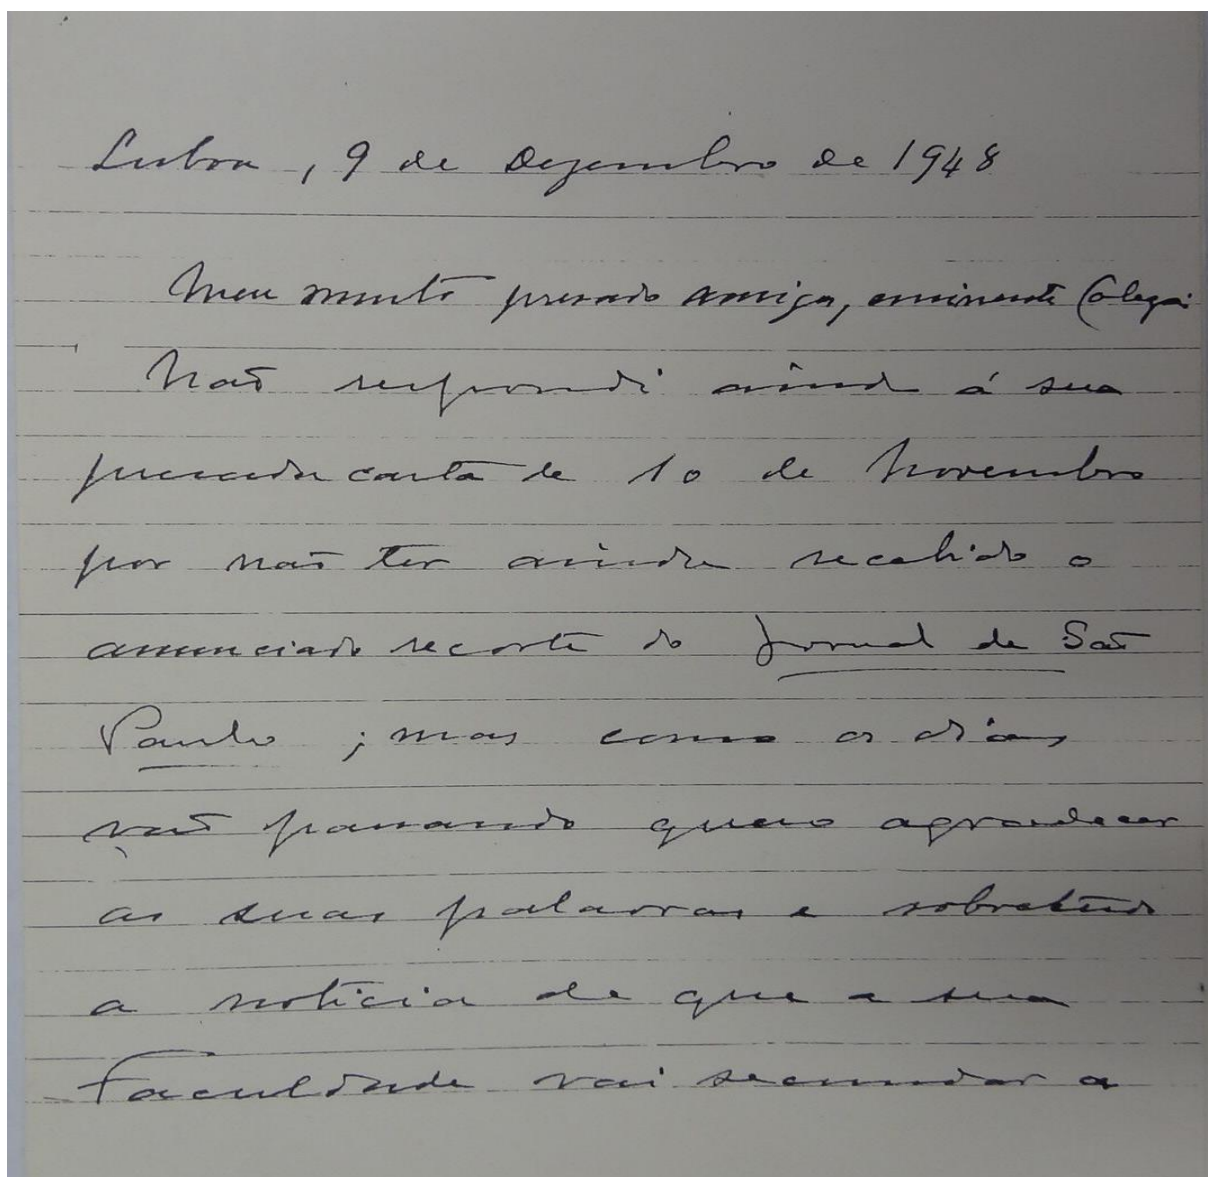 Lisboa, 9 de Dezembro de 1948
Meu muito presado amigo, eminente Colega
Não respondi ainda á sua
presada carta de 10 de Novembro
por não ter ainda recebido o
anunciado recorte do Jornal de São
Paulo; mas como os dias
vão passando quero agradecer
as suas palavras e sobretudo
a noticia de que a sua
Faculdade vai secundar a